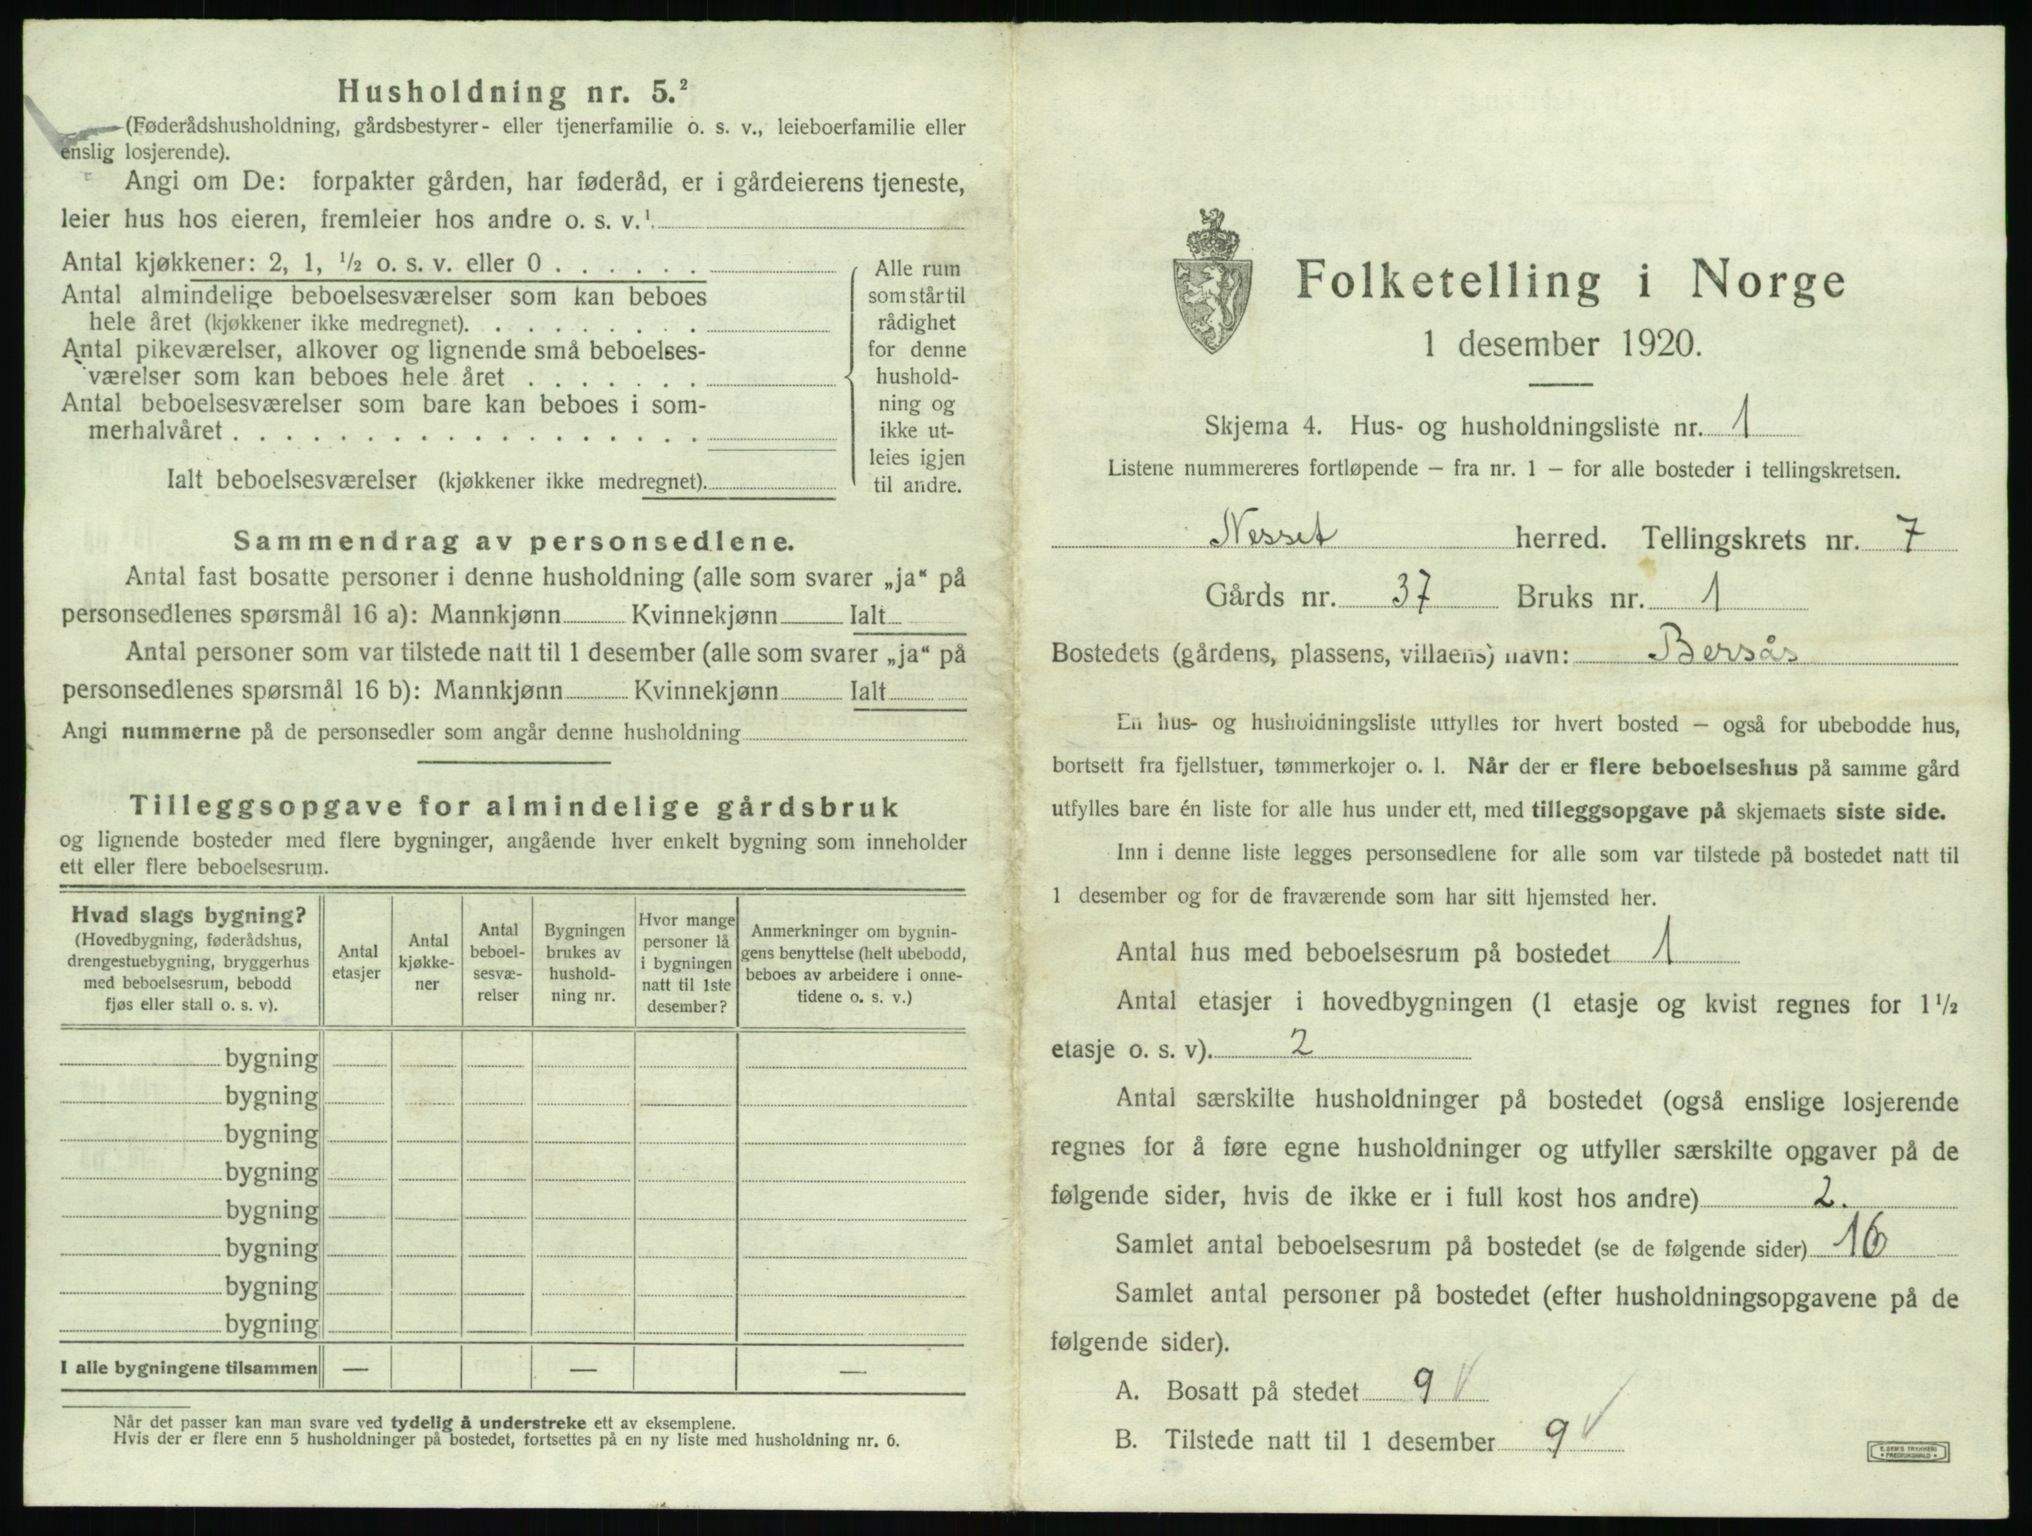 Husholdning nr. 5.²
(Føderådshusholdning, gårdsbestyrer- eller tjenerfamilie o. s. v., leieboerfamilie eller
enslig losjerende).
Angi om De: forpakter gården, har føderåd, er i gårdeierens tjeneste,
leier hus hos eieren, fremleier hos andre o. s. v.¹
Antal kjøkkener: 2, 1, ½ o. s. v. eller 0 . . . . . .
Antal almindelige beboelsesværelser som kan beboes
hele året (kjøkkener ikke medregnet). . . . . . . . .
Antal pikeværelser, alkover og lignende små beboelses-
værelser som kan beboes hele året . . . . . . .
Antal beboelsesværelser som bare kan beboes i som-
merhalvåret . . . . . . . . . . . . . . . . . .
Ialt beboelsesværelser (kjøkkener ikke medregnet).
Alle rum
som står til
rådighet
for denne
hushold-
ning og
ikke ut-
leies igjen
til andre.
Sammendrag av personsedlene.
Antal fast bosatte personer i denne husholdning (alle som svarer „ja“ på
personsedlenes spørsmål 16 a): Mannkjønn Kvinnekjønn Ialt
Antal personer som var tilstede natt til 1 desember (alle som svarer „ja“ på
personsedlenes spørsmål 16 b): Mannkjønn Kvinnekjønn Ialt
Angi nummerne på de personsedler som angår denne husholdning
Tilleggsopgave for almindelige gårdsbruk
og lignende bosteder med flere bygninger, angående hver enkelt bygning som inneholder
ett eller flere beboelsesrum.
Hvad slags bygning?
(Hovedbygning, føderådshus,
drengestuebygning, bryggerhus
med beboelsesrum, bebodd
fjøs eller stall o. s. v).
Antal
etasjer
Antal
kjøkke-
ner
Antal
beboel-
sesvæ-
relser
Bygningen
brukes av
hushold-
ning nr.
Hvor mange
personer lå
i bygningen
natt til 1ste
desember?
Anmerkninger om bygnin-
gens benyttelse (helt ubebodd,
beboes av arbeidere i onne-
tidene o. s. v.)
bygning
bygning
bygning
bygning
bygning
bygning
bygning
bygning
I alle bygningene tilsammen — — —
Når det passer kan man svare ved tydelig å understreke ett av eksemplene.
Hvis der er flere enn 5 husholdninger på bostedet, fortsettes på en ny liste med husholdning nr. 6.
Folketelling i Norge
1 desember 1920.
Skjema 4. Hus- og husholdningsliste nr. 1
Listene nummereres fortløpende — fra nr. 1 — for alle bosteder i tellingskretsen.
Nesset herred. Tellingskrets nr. 7
Gårds nr. 37 Bruks nr. 1
Bostedets (gårdens, plassens, villaens) navn: Bersås
En hus- og husholdningsliste utfylles for hvert bosted — også for ubebodde hus,
bortsett fra fjellstuer, tømmerkojer o. l. Når der er flere beboelseshus på samme gård
utfylles bare én liste for alle hus under ett, med tilleggsopgave på skjemaets siste side.
Inn i denne liste legges personsedlene for alle som var tilstede på bostedet natt til
1 desember og for de fraværende som har sitt hjemsted her.
Antal hus med beboelsesrum på bostedet 1
Antal etasjer i hovedbygningen (1 etasje og kvist regnes for 1½
etasje o. s. v). 2
Antal særskilte husholdninger på bostedet (også enslige losjerende
regnes for å føre egne husholdninger og utfyller særskilte opgaver på de
følgende sider, hvis de ikke er i full kost hos andre) 2.
Samlet antal beboelsesrum på bostedet (se de følgende sider) 16
Samlet antal personer på bostedet (efter husholdningsopgavene på de
følgende sider).
A. Bosatt på stedet 9 √
B. Tilstede natt til 1 desember 9 √